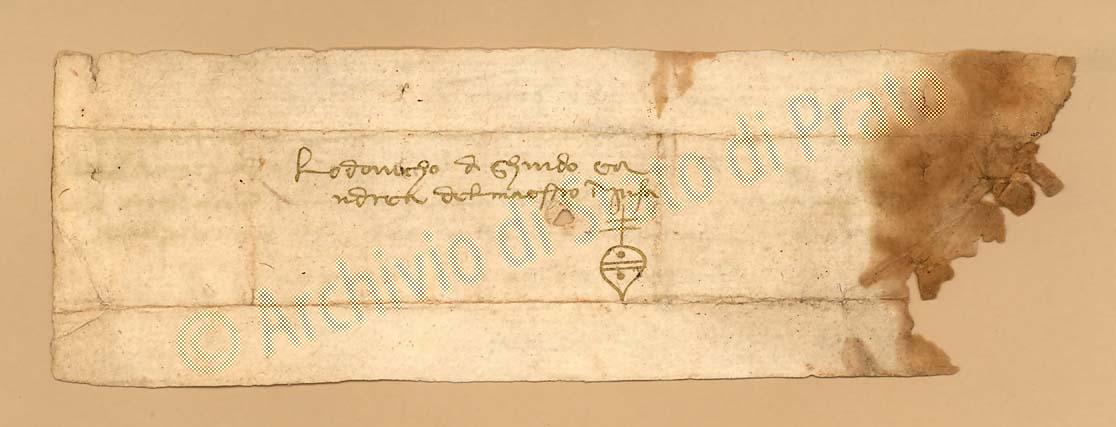 Lodovicho di Ghuido e a
ndrea del maestro in pisa
© Archivio di Stato di Prato